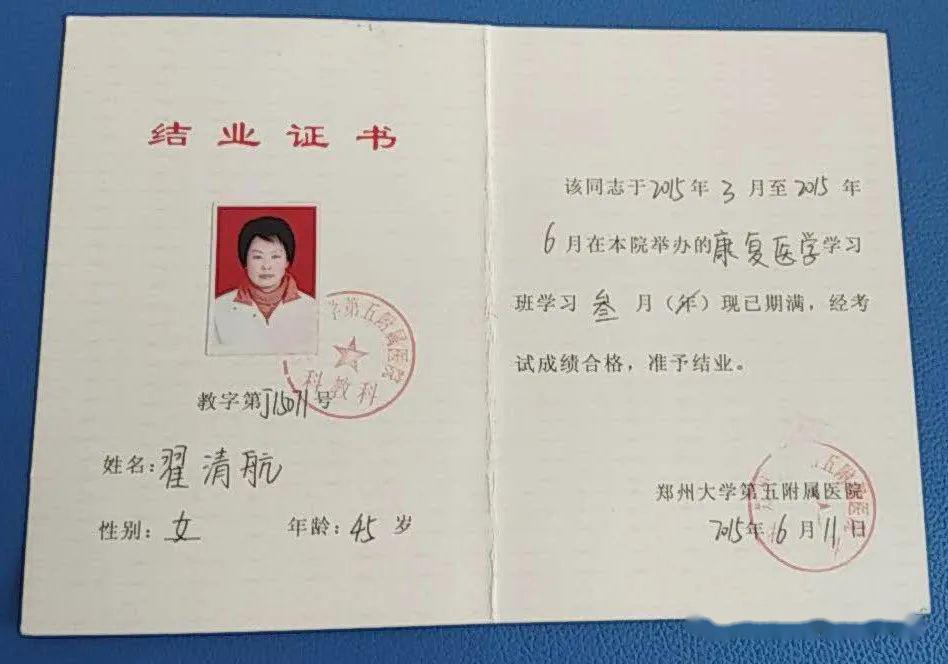 结业证书
学第五附属医院
科教科
教字第J15071号
姓名:翟清航
性别:女 年龄:45岁
该同志于2015年3月至2015年
6月在本院举办的康复医学学习
班学习叁月(年)现已期满,经考
试成绩合格,准予结业。
郑州大学第五附属医院
2015年6月11日